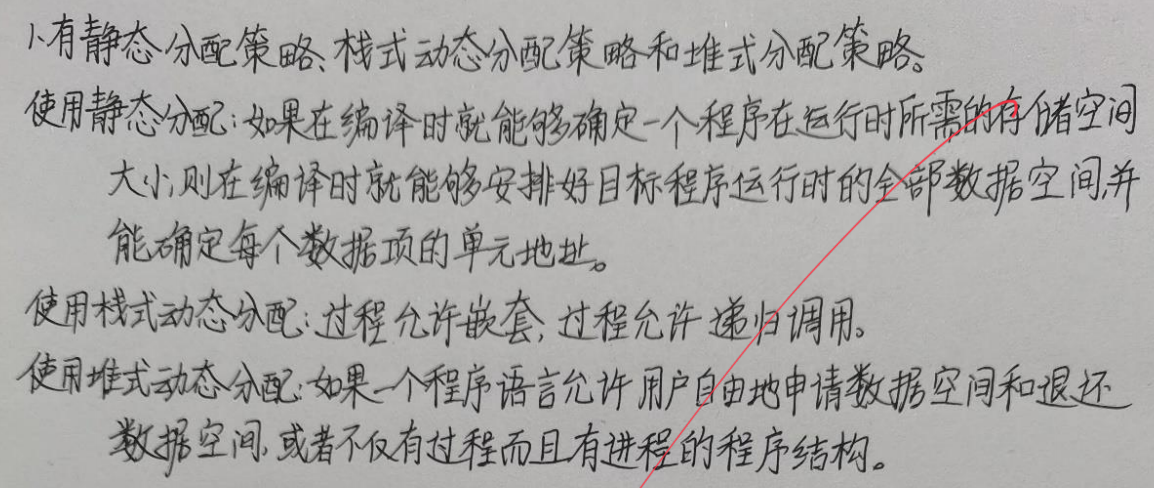 1、有静态分配策略、栈式动态分配策略和堆式分配策略。
使用静态分配:如果在编译时就能够确定一个程序在运行时所需的存储空间
大小,则在编译时就能够安排好目标程序运行时的全部数据空间,并
能确定每个数据项的单元地址。
使用栈式动态分配:过程允许嵌套,过程允许递归调用。
使用堆式动态分配:如果一个程序语言允许用户自由地申请数据空间和退还
数据空间,或者不仅有过程而且有进程的程序结构。